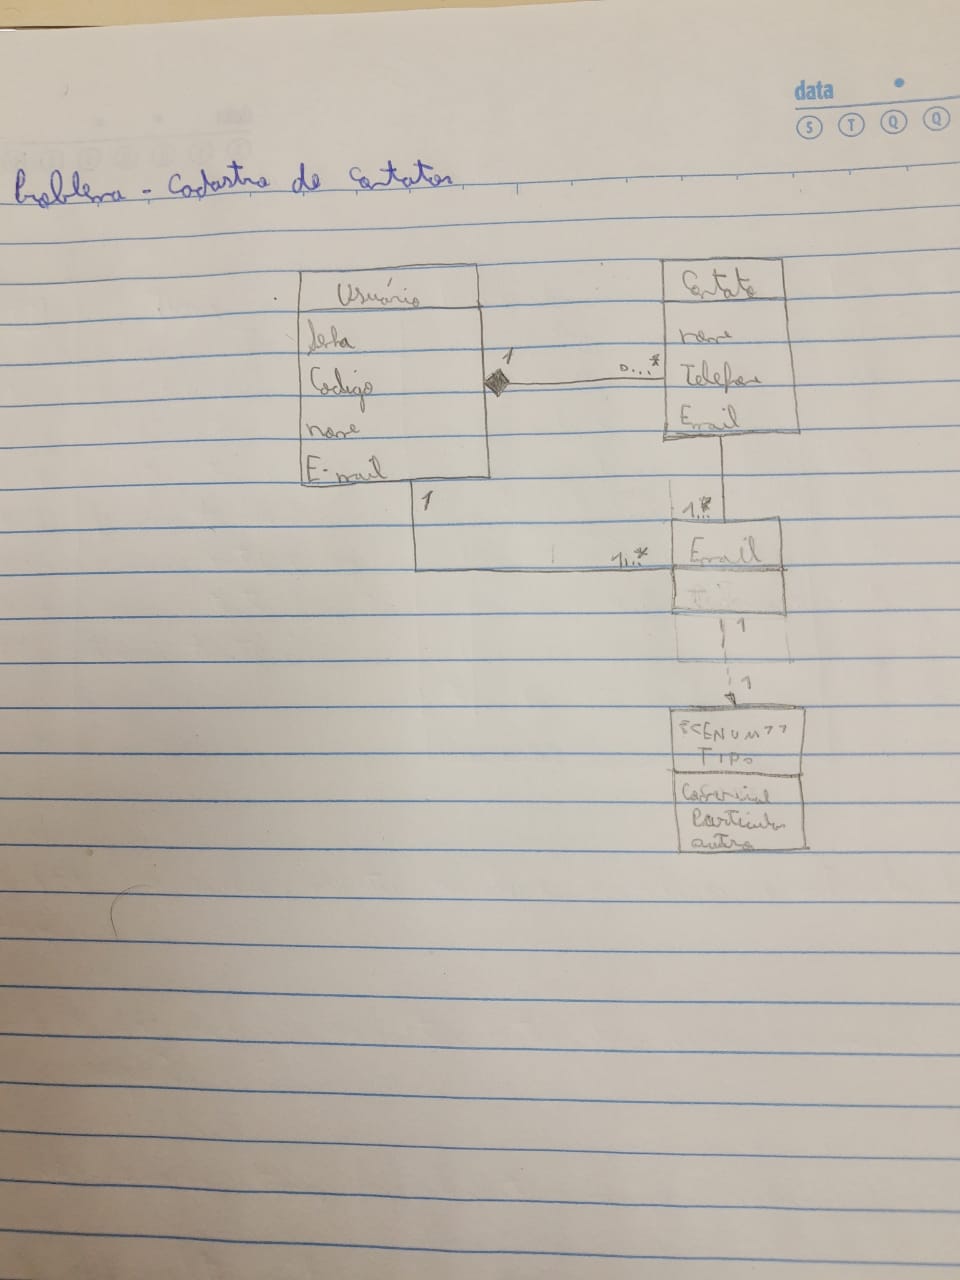 data
S T Q Q
Problema - Cadastro de Contatos
Usuário
Senha
Codigo
nome
E-mail
1
0...*
Contato
nome
Telefone
Email
1..*
1
1...*
Email
1
1
<<ENUM>>
TIPO
Comercial
Particular
outro